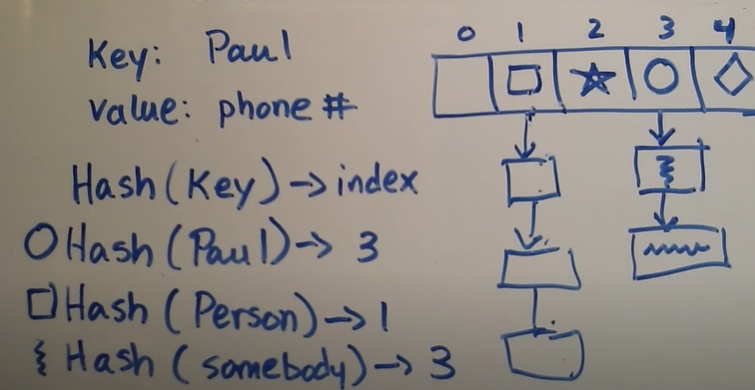 0 1 2 3 4
Key: Paul
value: phone #
Hash(Key)->index
Hash(Paul)-> 3
Hash(Person)->1
Hash(somebody)->3